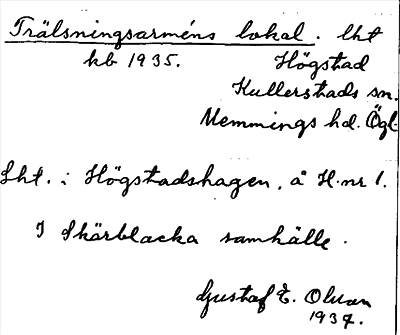 Frälsningsarméns lokal. lht
kb 1935. Högstad
Kullerstads sn.
Memmings hd. Ögl.
Lht. : Högstadshagen, å H. nr 1.
I Skärblacka samhälle.
Gustaf E. Olson
1937.